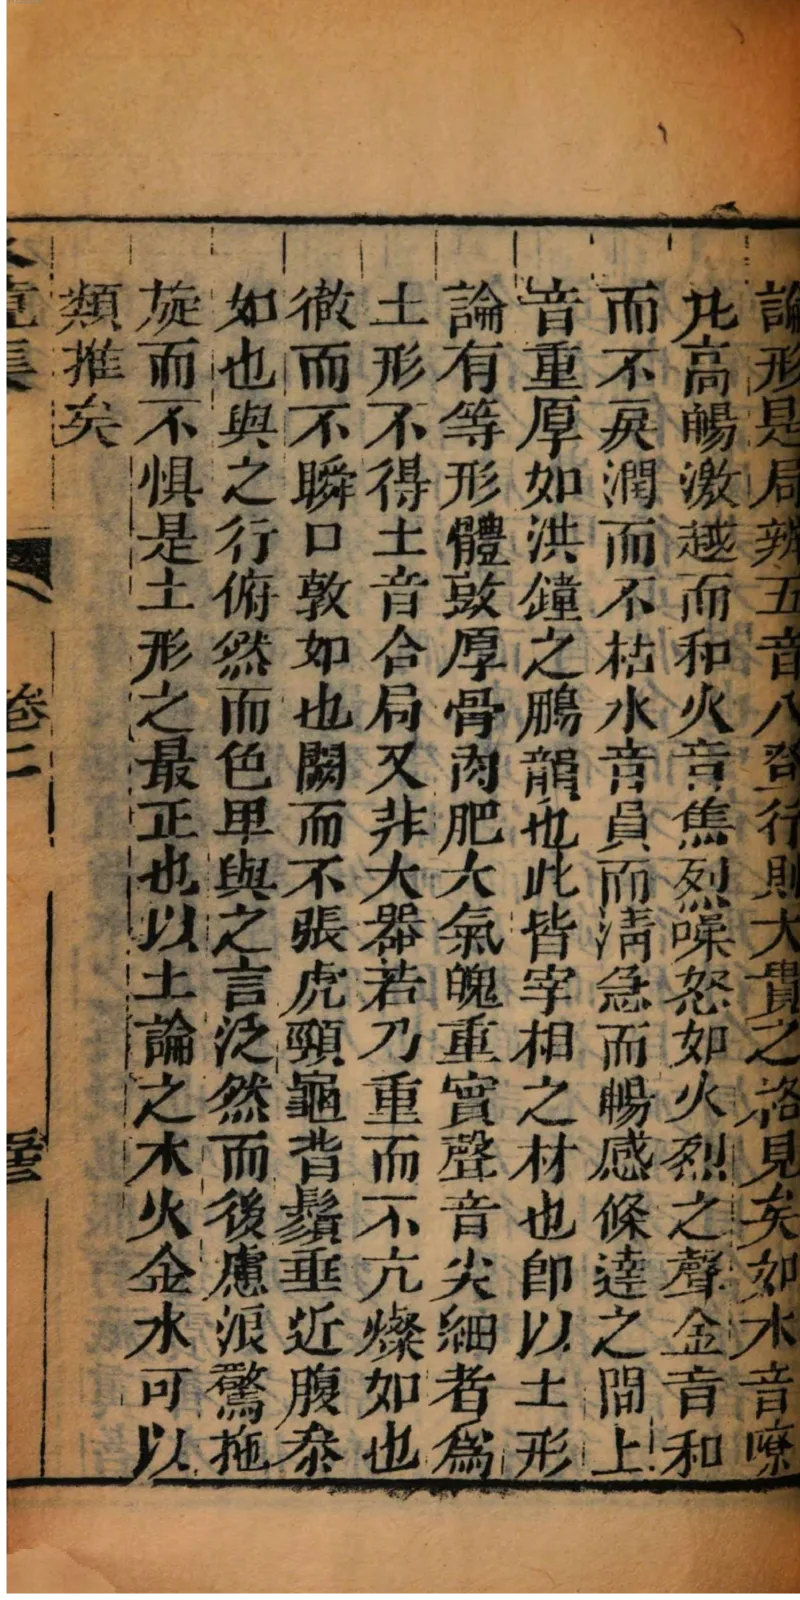 論形是局辨五音八登行則大貴之格見矣如木音嘹
九高暢激越而和火音焦烈噪怒如火烈之聲金音和
而不戾潤而不枯水音員而淸急而暢感條達之間上
音重厚如洪鐘之鵬韻也此皆宰相之材也卽以土形
論有等形體敦厚骨肉肥大氣魄重實聲音尖細者爲
土形不得土音合局又非大器若乃重而不亢燦如也
徹而不瞬口敦如也闕而不張虎頸龜背鬚垂近腹泰
如也與之行俯然而色卑與之言泛然而後慮浪驚拖
旋而不惧是土形之最正也以土論之木火金水可以
類推矣
卷二